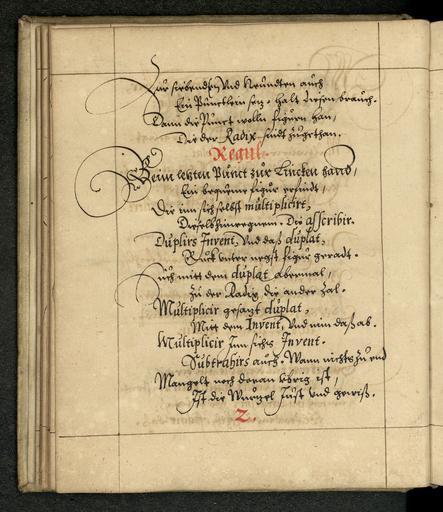 Zur siebenden Vnd Neundten auch
Ein Pünctlein setz. halt diesen brauch.
Dann die Punct wolln figurn han,
Die der Radix sindt zugethan.
Regul.
Beim letzten Punct zur Lincken handt,
Ein bequeme figur erfindt,
Die inn sich selbst multiplicirt,
Dieselb hinwegnem. Die asscribir.
Duplirs Invent, Vnd daß duplat,
Ruck vnter negst figur geradt.
Such mitt dem duplat abermal,
Zu der Radix die ander zal.
Multiplicir gesatzt duplat,
Mitt dem Invent, Vnd nim daß ab.
Multiplicir Inn sichs Invent.
Subtrahirs auch. Wann nichts zu end
Mangelt noch daran vbrig ist,
Ist die Wurtzel Just vnd gewiß.
2.